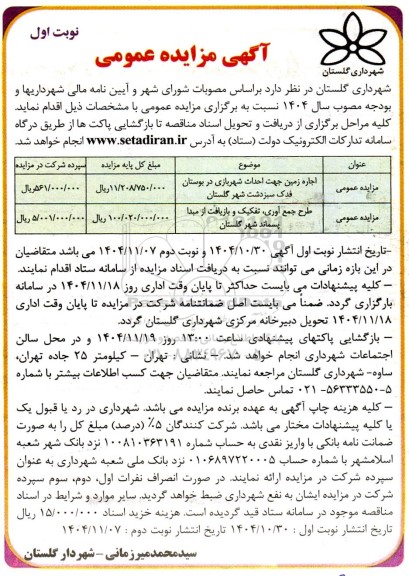 نوبت اول
آگهی مزایده عمومی
شهرداری گلستان
شهرداری گلستان در نظر دارد براساس مصوبات شورای شهر و آیین نامه مالی شهرداریها و
بودجه مصوب سال ۱۴۰۴ نسبت به برگزاری مزایده عمومی با مشخصات ذیل اقدام نماید.
کلیه مراحل برگزاری از دریافت و تحویل اسناد مناقصه تا بازگشایی پاکت ها از طریق درگاه
سامانه تدارکات الکترونیک دولت (ستاد) به آدرس www.setadiran.ir انجام خواهد شد.
عنوان موضوع مبلغ کل پایه مزایده سپرده شرکت در مزایده
مزایده عمومی اجاره زمین جهت احداث شهربازی در بوستان فدک سبزدشت شهر گلستان ۱۱/۲۰۸/۷۵۰/۰۰۰ریال ۵۶۱/۰۰۰/۰۰۰ریال
مزایده عمومی طرح جمع آوری، تفکیک و بازیافت از مبدا پسماند شهر گلستان ۱۰۰/۰۲۰/۰۰۰/۰۰۰ریال ۵/۰۰۱/۰۰۰/۰۰۰ ریال
-تاریخ انتشار نوبت اول آگهی ۱۴۰۴/۱۰/۳۰ و نوبت دوم ۱۴۰۴/۱۱/۰۷ می باشد متقاضیان
در این بازه زمانی می توانند نسبت به دریافت اسناد مزایده از سامانه ستاد اقدام نمایند.
– کلیه پیشنهادات می بایست حداکثر تا پایان وقت اداری روز ۱۴۰۴/۱۱/۱۸ در سامانه
بارگزاری گردد. ضمناً می بایست اصل ضمانتنامه شرکت در مزایده تا پایان وقت اداری
۱۴۰۴/۱۱/۱۸ تحویل دبیرخانه مرکزی شهرداری گلستان گردد.
– بازگشایی پاکتهای پیشنهادی ساعت ۱۳:۰۰ روز ۱۴۰۴/۱۱/۱۹ و در محل سالن
اجتماعات شهرداری انجام خواهد شد. – نشانی : تهران – کیلومتر ۲۵ جاده تهران،
ساوه- شهرداری گلستان مراجعه نمایند. متقاضیان جهت کسب اطلاعات بیشتر با شماره
۵-۵۶۳۳۳۵۵۰ ۰۲۱ تماس حاصل نمایند.
– کلیه هزینه چاپ آگهی به عهده برنده مزایده می باشد. شهرداری در رد یا قبول یک
یا کلیه پیشنهادات مختار می باشد. شرکت کنندگان ۵٪ (درصد) مبلغ کل را به صورت
ضمانت نامه بانکی یا واریز نقدی به حساب شماره ۱۰۰۸۱۰۳۶۳۱۹۱ نزد بانک شهر شعبه
اسلامشهر با شماره حساب ۰۱۰۶۸۹۷۲۲۰۰۰۵ نزد بانک ملی شعبه شهرداری به عنوان
سپرده شرکت در مزایده ارائه نمایند. در صورت انصراف نفرات اول، دوم، سوم سپرده
شرکت در مزایده ایشان به نفع شهرداری ضبط خواهد گردید. سایر موارد و شرایط در اسناد
مناقصه موجود در سامانه ستاد قید گردیده است. هزینه خرید اسناد ۱۵/۰۰۰/۰۰۰ ریال
تاریخ انتشار نوبت اول : ۱۴۰۴/۱۰/۳۰ تاریخ انتشار نوبت دوم : ۱۴۰۴/۱۱/۰۷
سیدمحمدمیرزمانی - شهردار گلستان